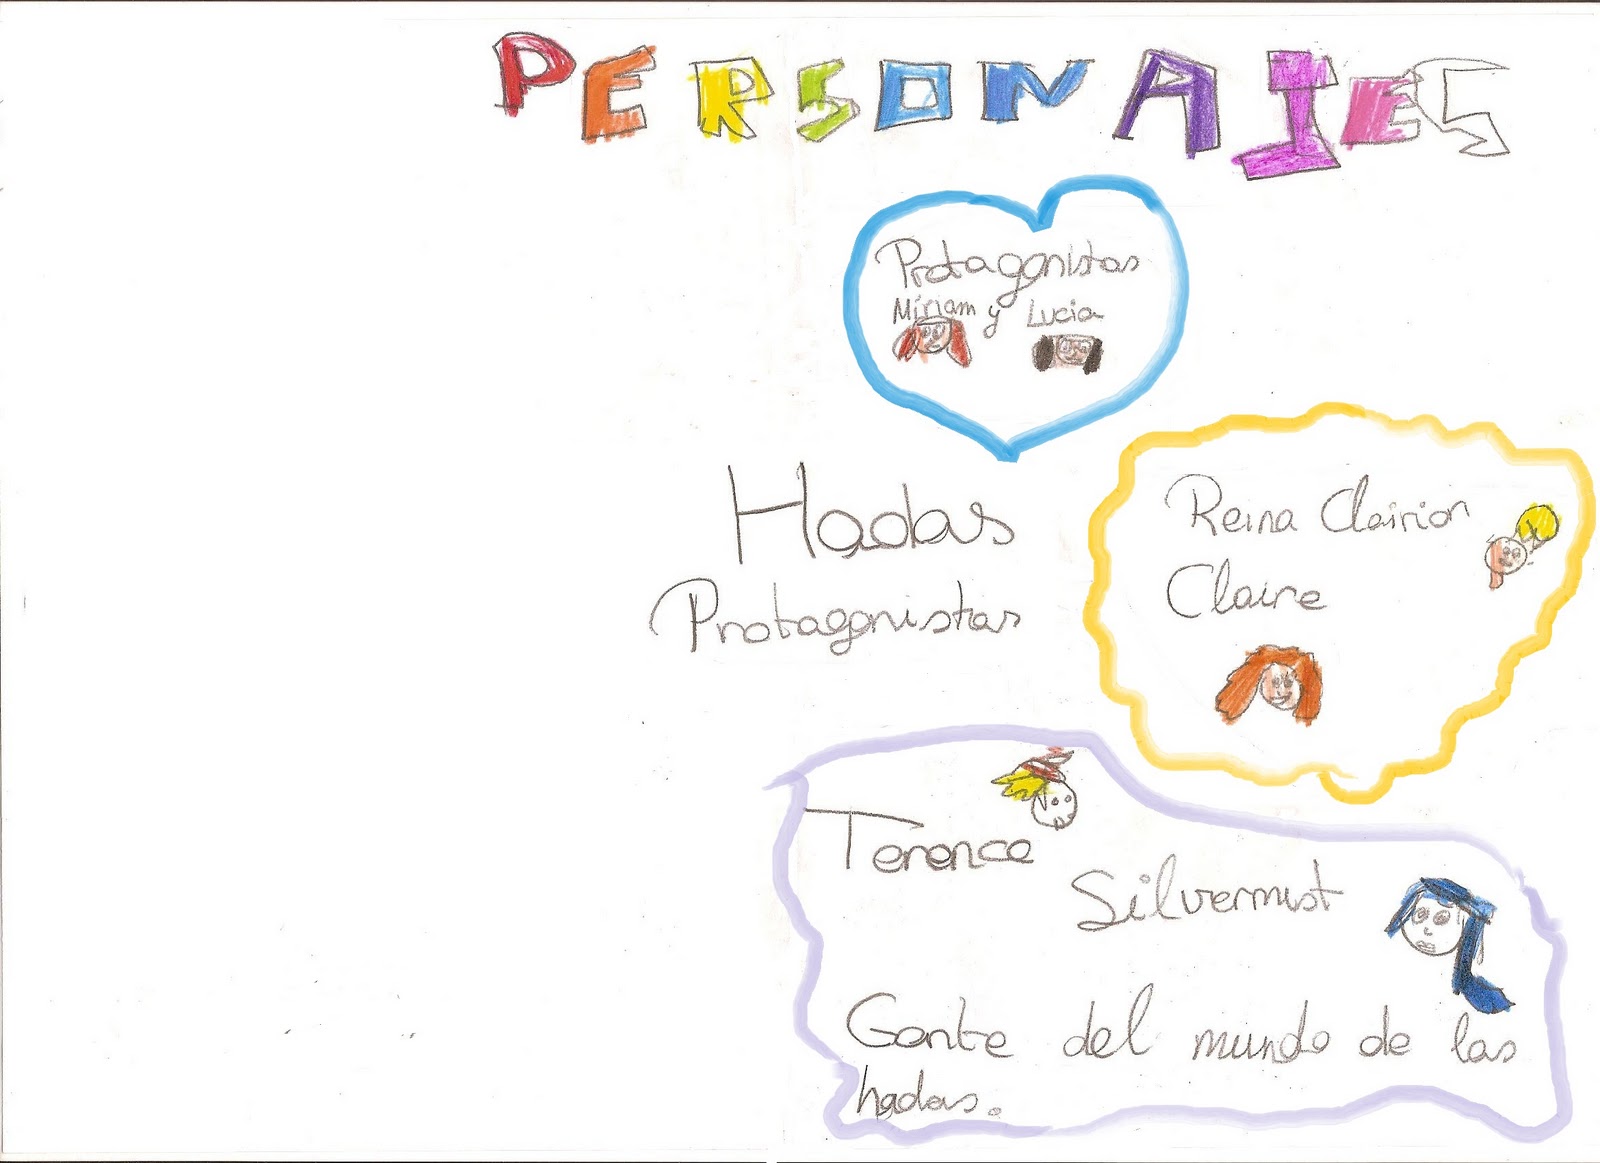 PERSONAJES
Protagonistas
Miriam y Lucia
Hadas
Protagonistas
Reina Clairion
Claire
Terence
Silvermist
Gente del mundo de las
hadas.